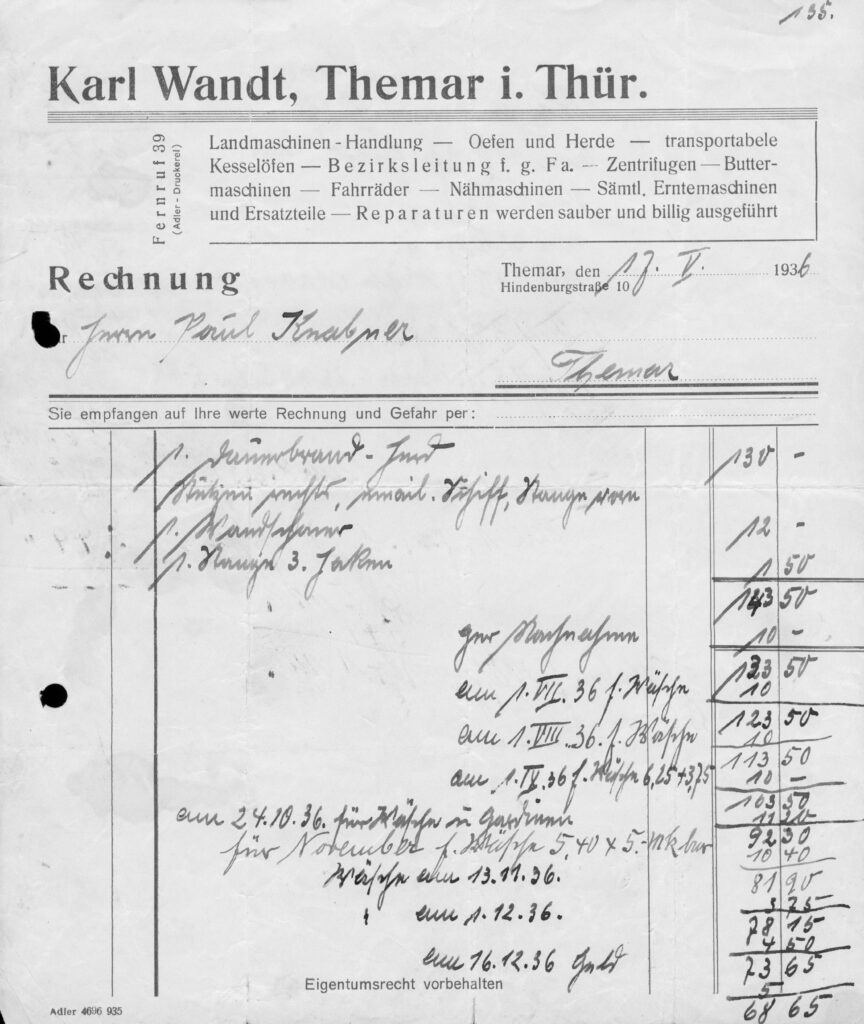 135.
Karl Wandt, Themar i. Thür.
Fernruf 39
(Adler - Druckerei)
Landmaschinen - Handlung — Oefen und Herde — transportabele
Kesselöfen — Bezirksleitung f. g. Fa. — Zentrifugen — Butter-
maschinen — Fahrräder — Nähmaschinen — Sämtl. Erntemaschinen
und Ersatzteile — Reparaturen werden sauber und billig ausgeführt
Rechnung
Themar, den 17. V. 1936
Hindenburgstraße 10
Herrn Paul Knabner
Themar
Sie empfangen auf Ihre werte Rechnung und Gefahr per:
1. Dauerbrand-Herd 130 -
rechts, email. Schiff, Stange vorn
1. 12 -
1. Stange 3. Haken 1 50
143 50
per Nachnahme 10 -
133 50
am 1. VII. 36 f. Wäsche 10
123 50
am 1. VIII. 36. f. Wäsche 10
113 50
am 1. IX. 36 f. Wäsche 6,25+3,75 10 -
103 50
am 24.10.36. für Wäsche u Gardinen 11 20
92 30
für November f. Wäsche 5,40 x 5.- Mk bar 10 40
81 90
Wäsche am 13.11.36. 3 75
78 15
am 1.12.36. 4 50
73 65
am 16.12.36 Geld 5
68 65
Eigentumsrecht vorbehalten
Adler 4696 935